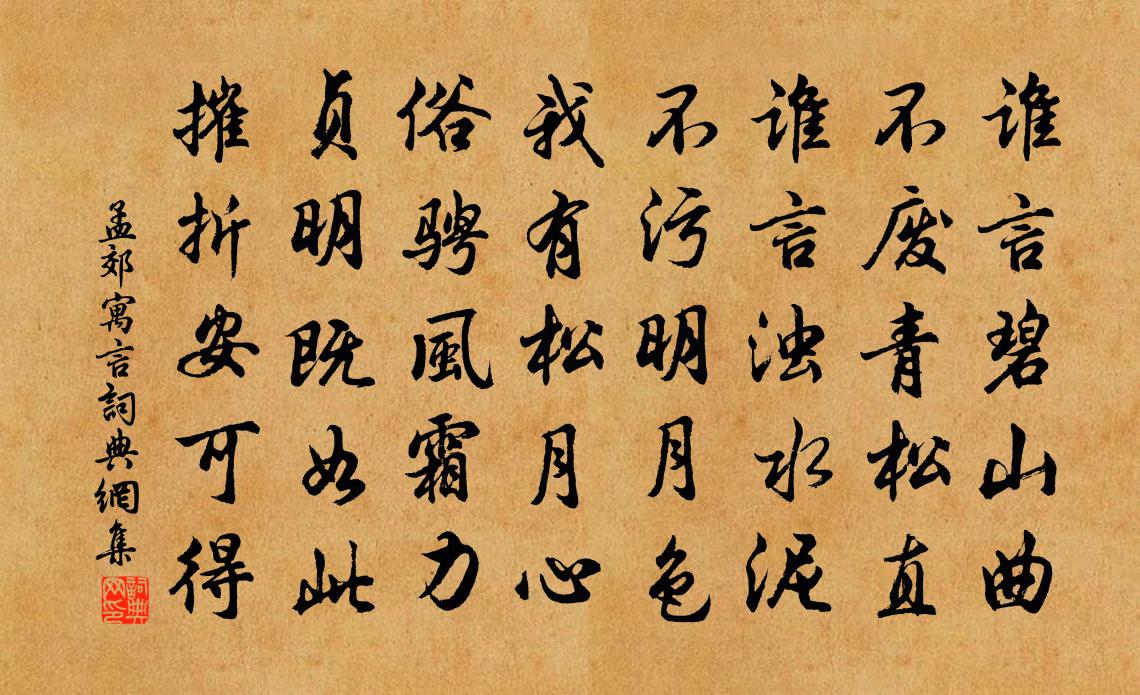 谁言碧山曲
不废青松直
谁言浊水泥
不污明月色
我有松月心
俗骋風霜力
貞明既如此
摧折安可得
孟郊寓言詞典網集
詞典网印